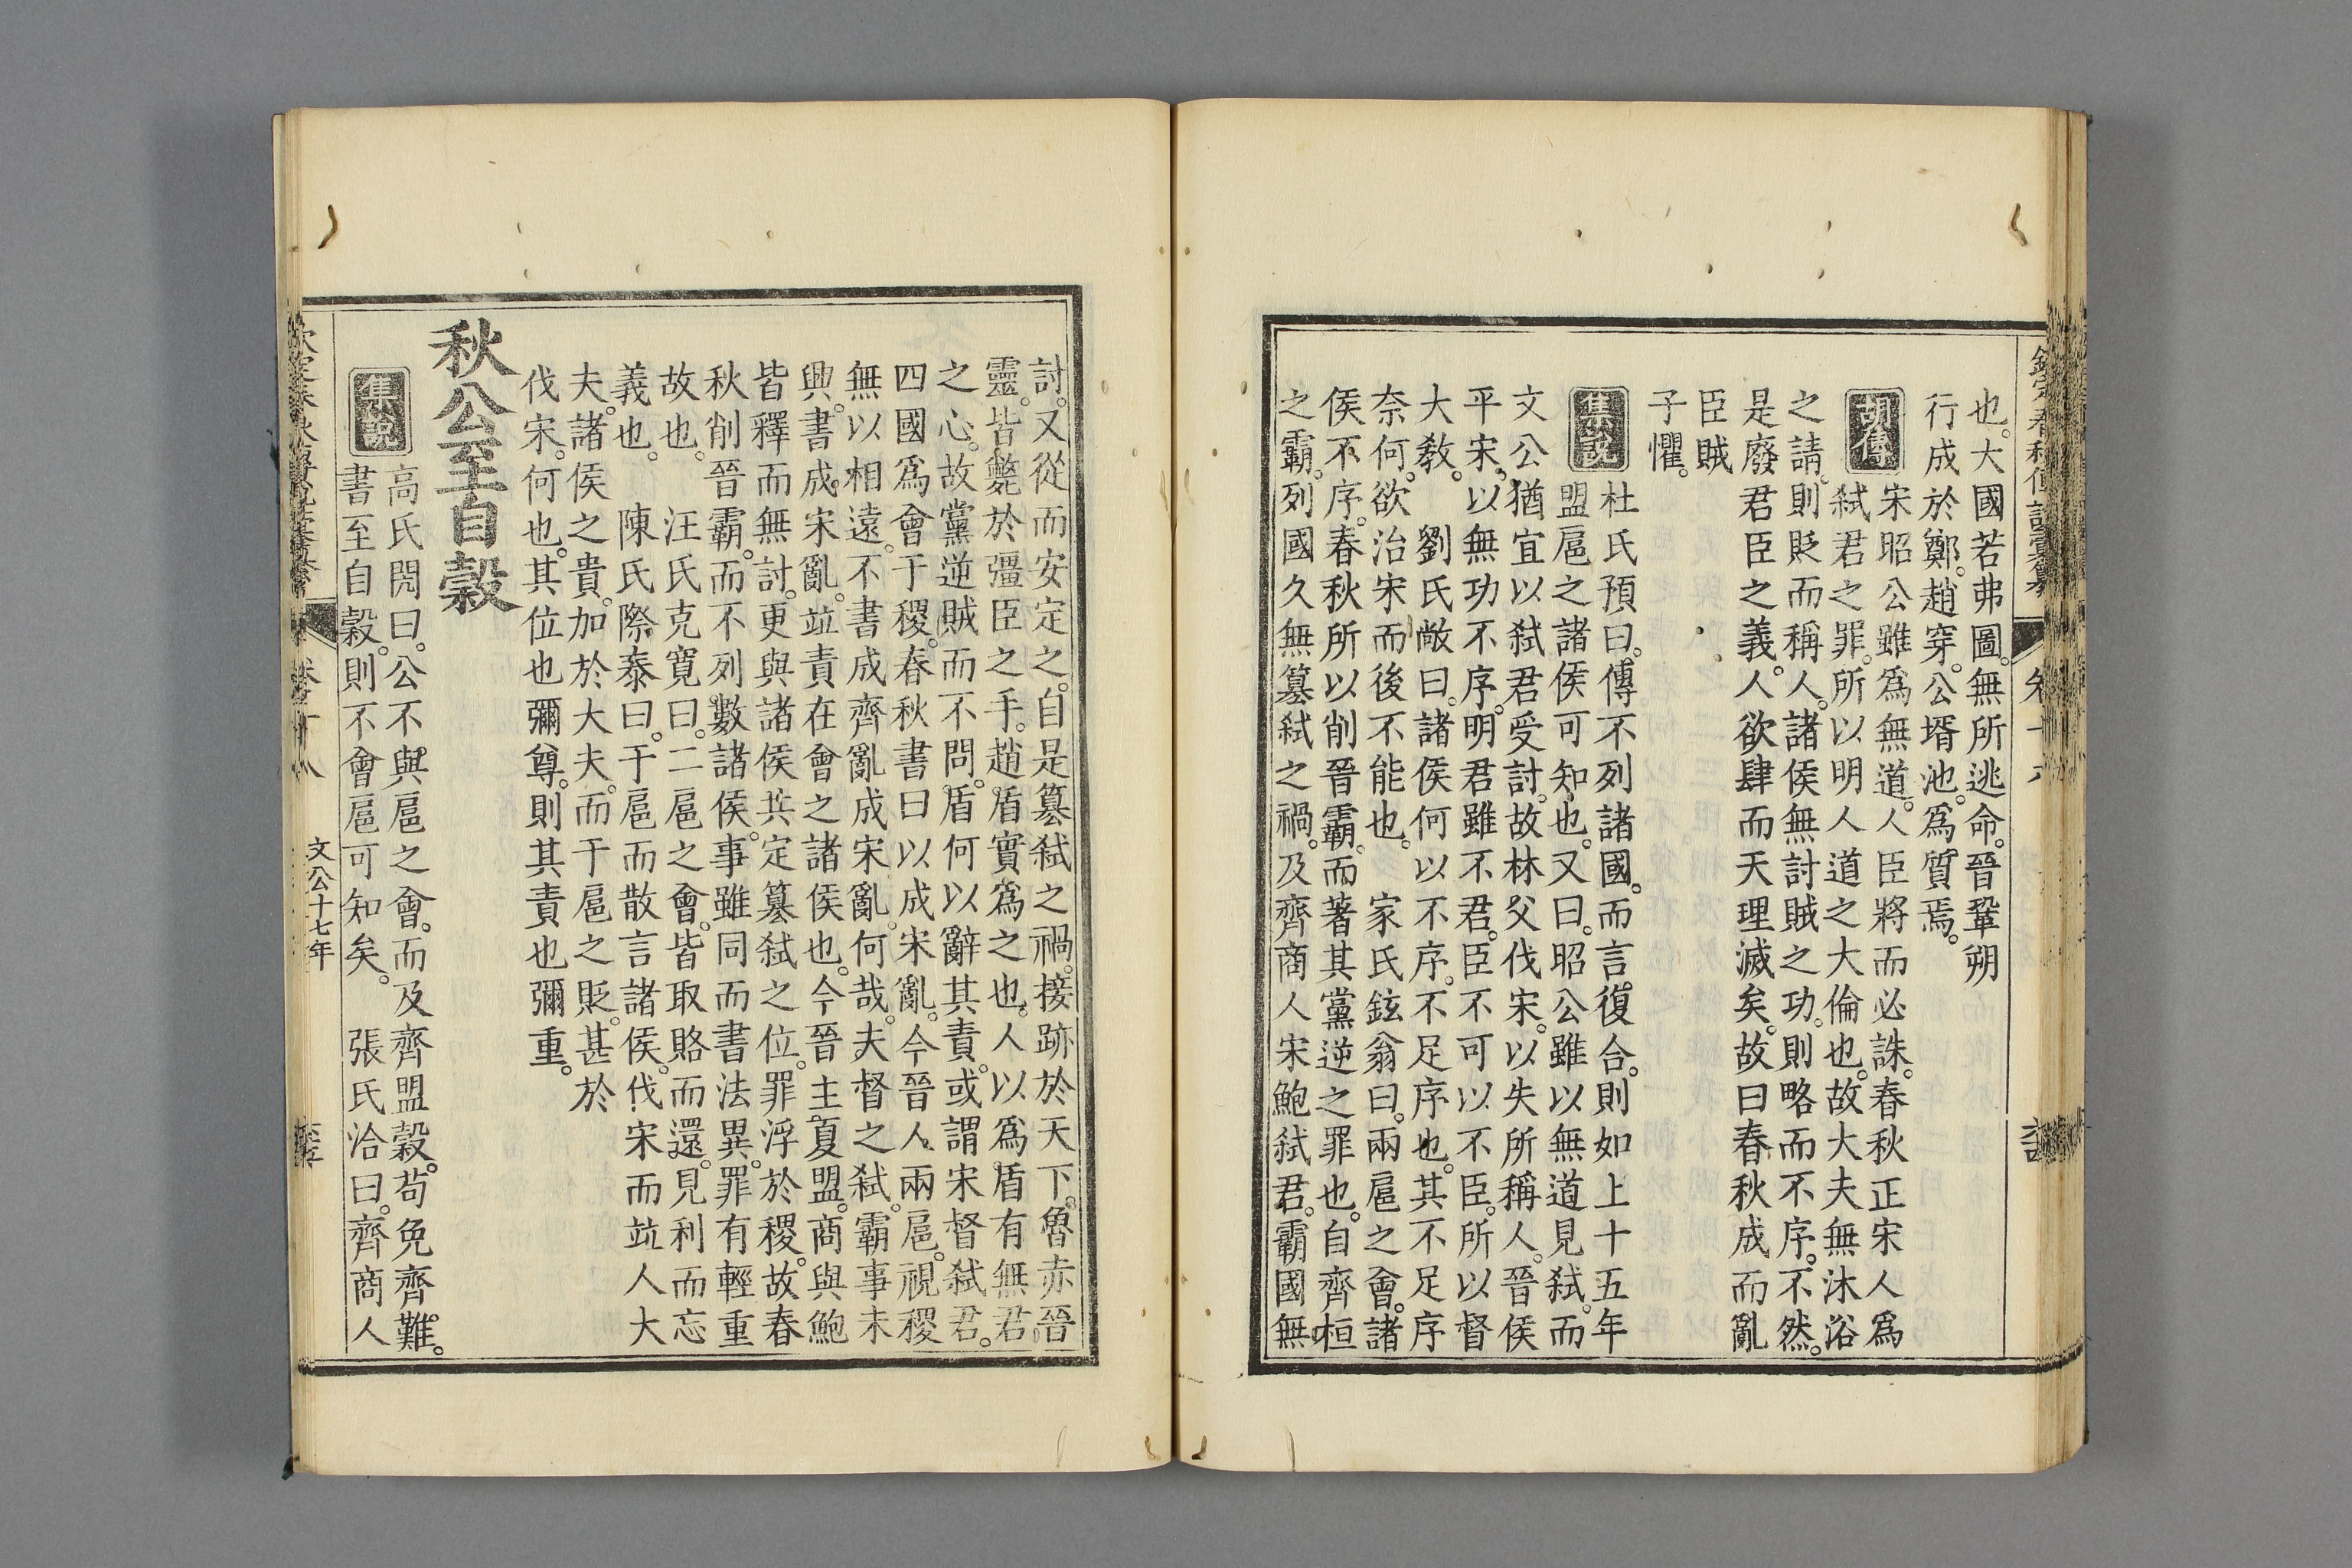 也。大國若弗圖。無所逃命。晉鞏朔
行成於鄭。趙穿。公壻池。爲質焉。
胡傳
宋昭公雖爲無道。人臣將而必誅。春秋正宋人爲
弑君之罪。所以明人道之大倫也。故大夫無沐浴
之請。則貶而稱人。諸侯無討賊之功。則略而不序。不然。
是廢君臣之義。人欲肆而天理滅矣。故曰春秋成而亂
臣賊
子懼。
集說
杜氏預曰。傳不列諸國。而言復合。則如上十五年
盟扈之諸侯可知也。又曰。昭公雖以無道見弑。而
文公猶宜以弑君受討。故林父伐宋。以失所稱人。晉侯
平宋。以無功不序。明君雖不君。臣不可以不臣。所以督
大敎。　劉氏敞曰。諸侯何以不序。不足序也。其不足序
奈何。欲治宋而後不能也。　家氏鉉翁曰。兩扈之會。諸
侯不序。春秋所以削晉霸。而著其黨逆之罪也。自齊桓
之霸。列國久無簒弑之禍。及齊商人宋鮑弑君。霸國無
討。又從而安定之。自是簒弑之禍。接跡於天下。魯赤晉
靈。皆斃於彊臣之手。趙盾實爲之也。人以爲盾有無君
之心。故黨逆賊而不問。盾何以辭其責。或謂宋督弑君。
四國爲會于稷。春秋書曰以成宋亂。今晉人兩扈。視稷
無以相遠。不書成齊亂成宋亂。何哉。夫督之弑。霸事未
興。書成宋亂。竝責在會之諸侯也。今晉主夏盟。商與鮑
皆釋而無討。更與諸侯共定簒弑之位。罪浮於稷。故春
秋削晉霸。而不列數諸侯。事雖同而書法異。罪有輕重
故也。　汪氏克寬曰。二扈之會。皆取賂而還。見利而忘
義也。　陳氏際泰曰。于扈而散言諸侯。伐宋而竝人大
夫。諸侯之貴。加於大夫。而于扈之貶。甚於
伐宋。何也。其位也彌尊。則其責也彌重。
秋公至自穀
集說
高氏閌曰。公不與扈之會。而及齊盟穀。苟免齊難。
書至自穀。則不會扈可知矣。　張氏洽曰。齊商人
文公十七年